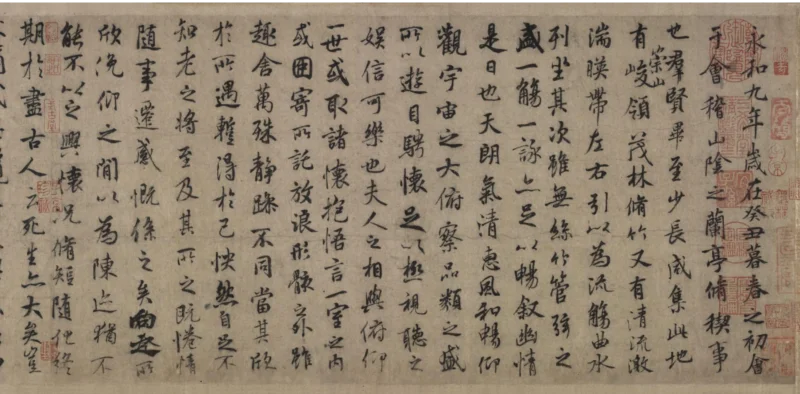 永和九年歲在癸丑暮春之初會
于會稽山陰之蘭亭脩稧事
也羣賢畢至少長咸集此地
有崇山峻領茂林脩竹又有清流激
湍暎帶左右引以為流觴曲水
列坐其次雖無絲竹管弦之
盛一觴一詠亦足以暢叙幽情
是日也天朗氣清惠風和暢仰
觀宇宙之大俯察品類之盛
所以遊目騁懷足以極視聽之
娛信可樂也夫人之相與俯仰
一世或取諸懷抱悟言一室之內
或因寄所託放浪形骸之外雖
趣舍萬殊静躁不同當其欣
於所遇蹔得於己怏然自足不
知老之將至及其所之既惓情
隨事遷感慨係之矣向之所
欣俛仰之閒以為陳迹猶不
能不以之興懷況脩短隨化終
期於盡古人云死生亦大矣豈